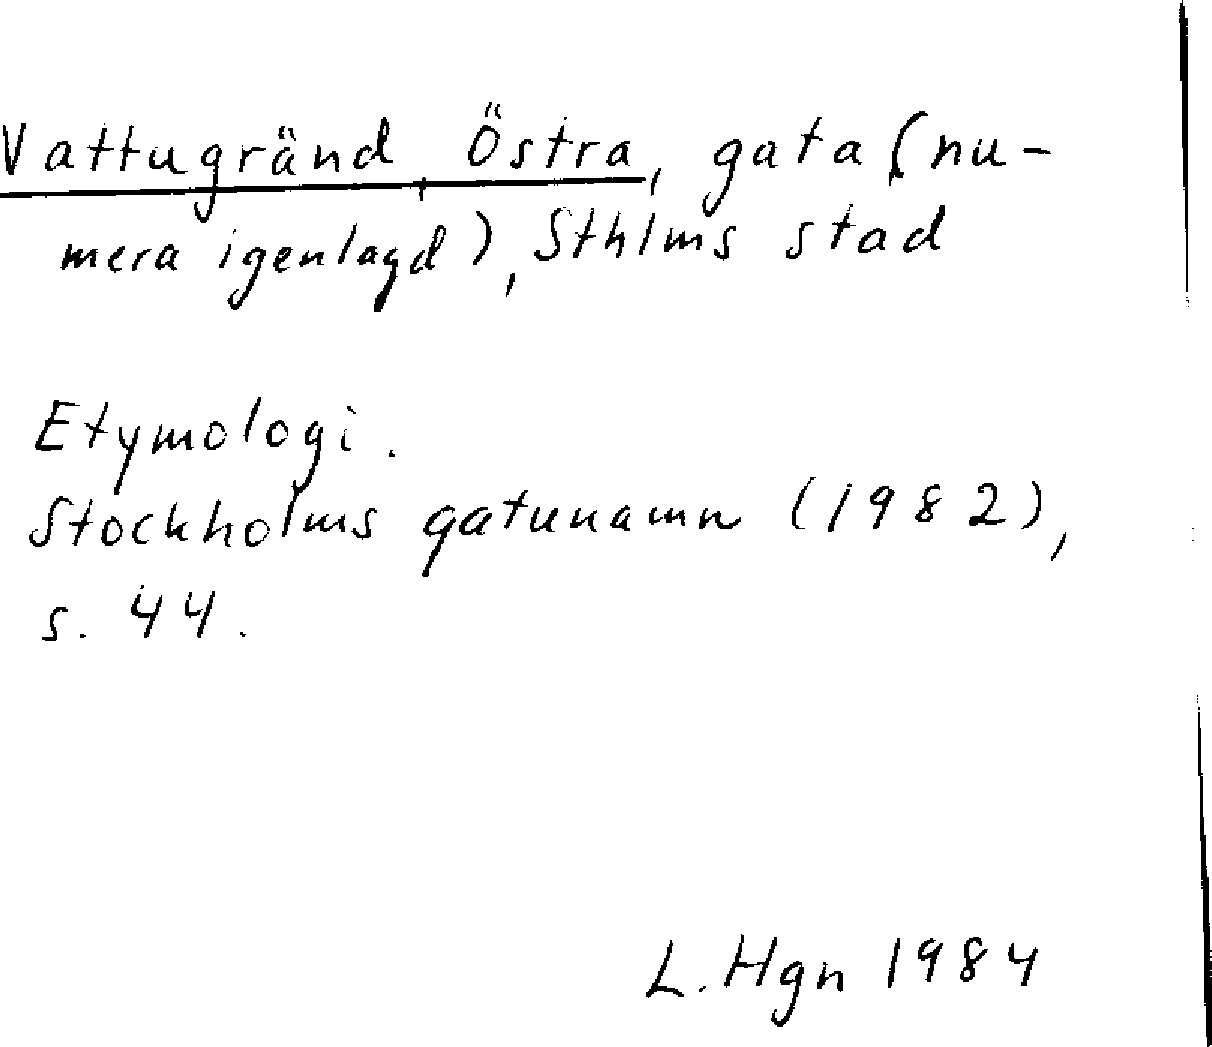 Vattugränd, Östra, gata (nu-
mera igenlagd), Sthlms stad
Etymologi.
Stockholms gatunamn (1982),
s. 44.
L. Hgn 1984